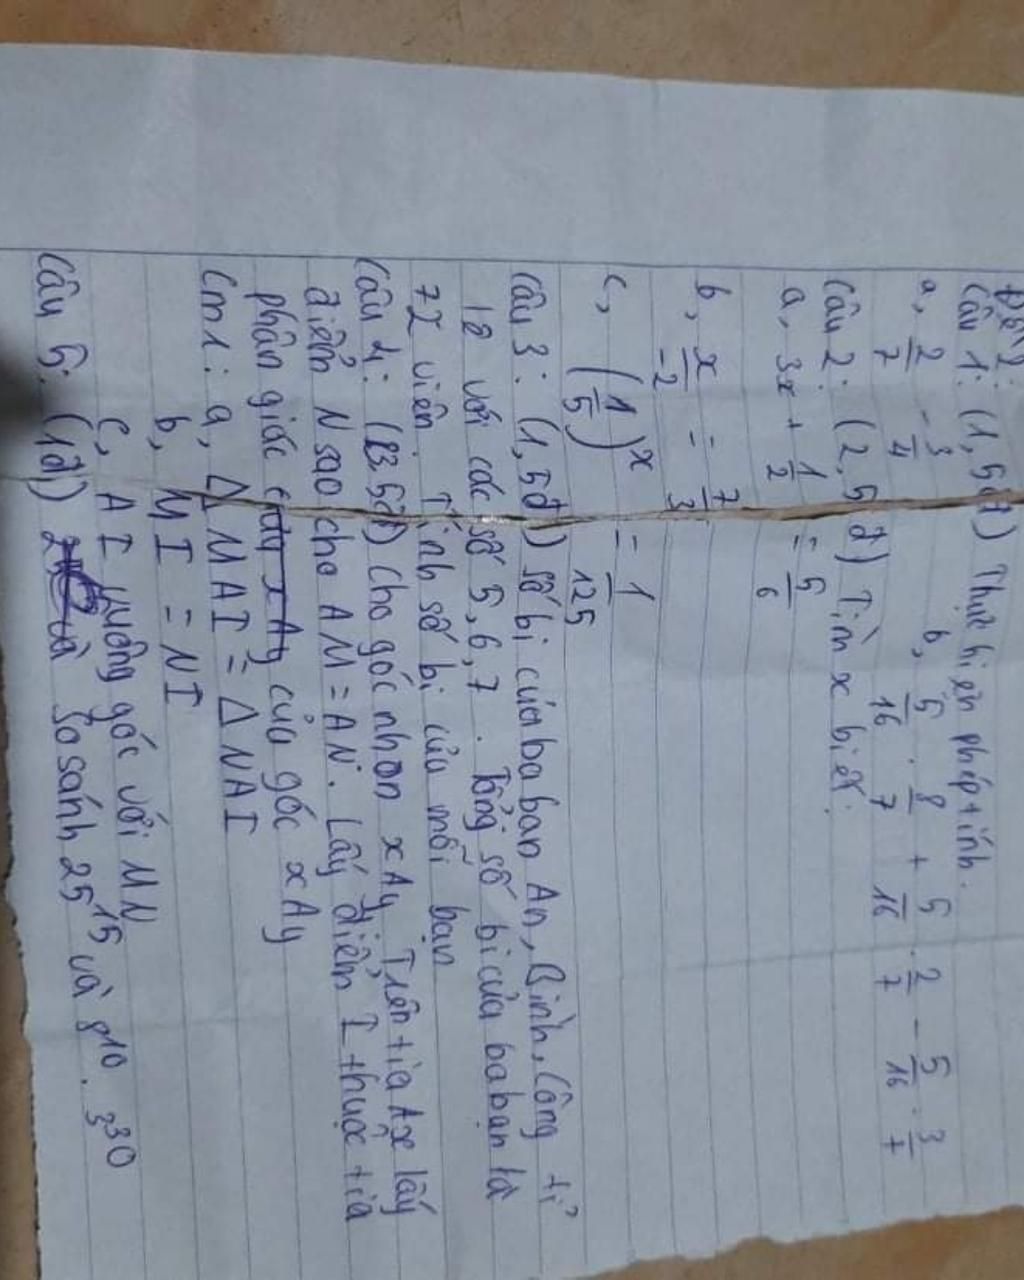 Đề 2:
Câu 1: (1,5đ) Thực hiện phép tính.
a, 2/7 - 3/4 b, 5/16 . 8/7 + 5/16 . 2/7 - 5/16 . 3/7
Câu 2: (2,5đ) Tìm x biết:
a, 3x + 1/2 = 5/6
b, x/-2 = 7/3
c, (1/5)^x = 1/125
Câu 3: (1,5đ) số bi của ba bạn An, Bình, Công tỉ
lệ với các số 5, 6, 7. Tổng số bi của ba bạn là
72 viên. Tính số bi của mỗi bạn
Câu 4: (3.5đ) Cho góc nhọn xAy. Trên tia Ax lấy
điểm N sao cho AM = AN. Lấy điểm I thuộc tia
phân giác của góc xAy
Cm1: a, Δ MAI = Δ NAI
b, MI = NI
c, AI vuông góc với MN
Câu 5: (1đ) So sánh 25^15 và 8^10 . 3^30